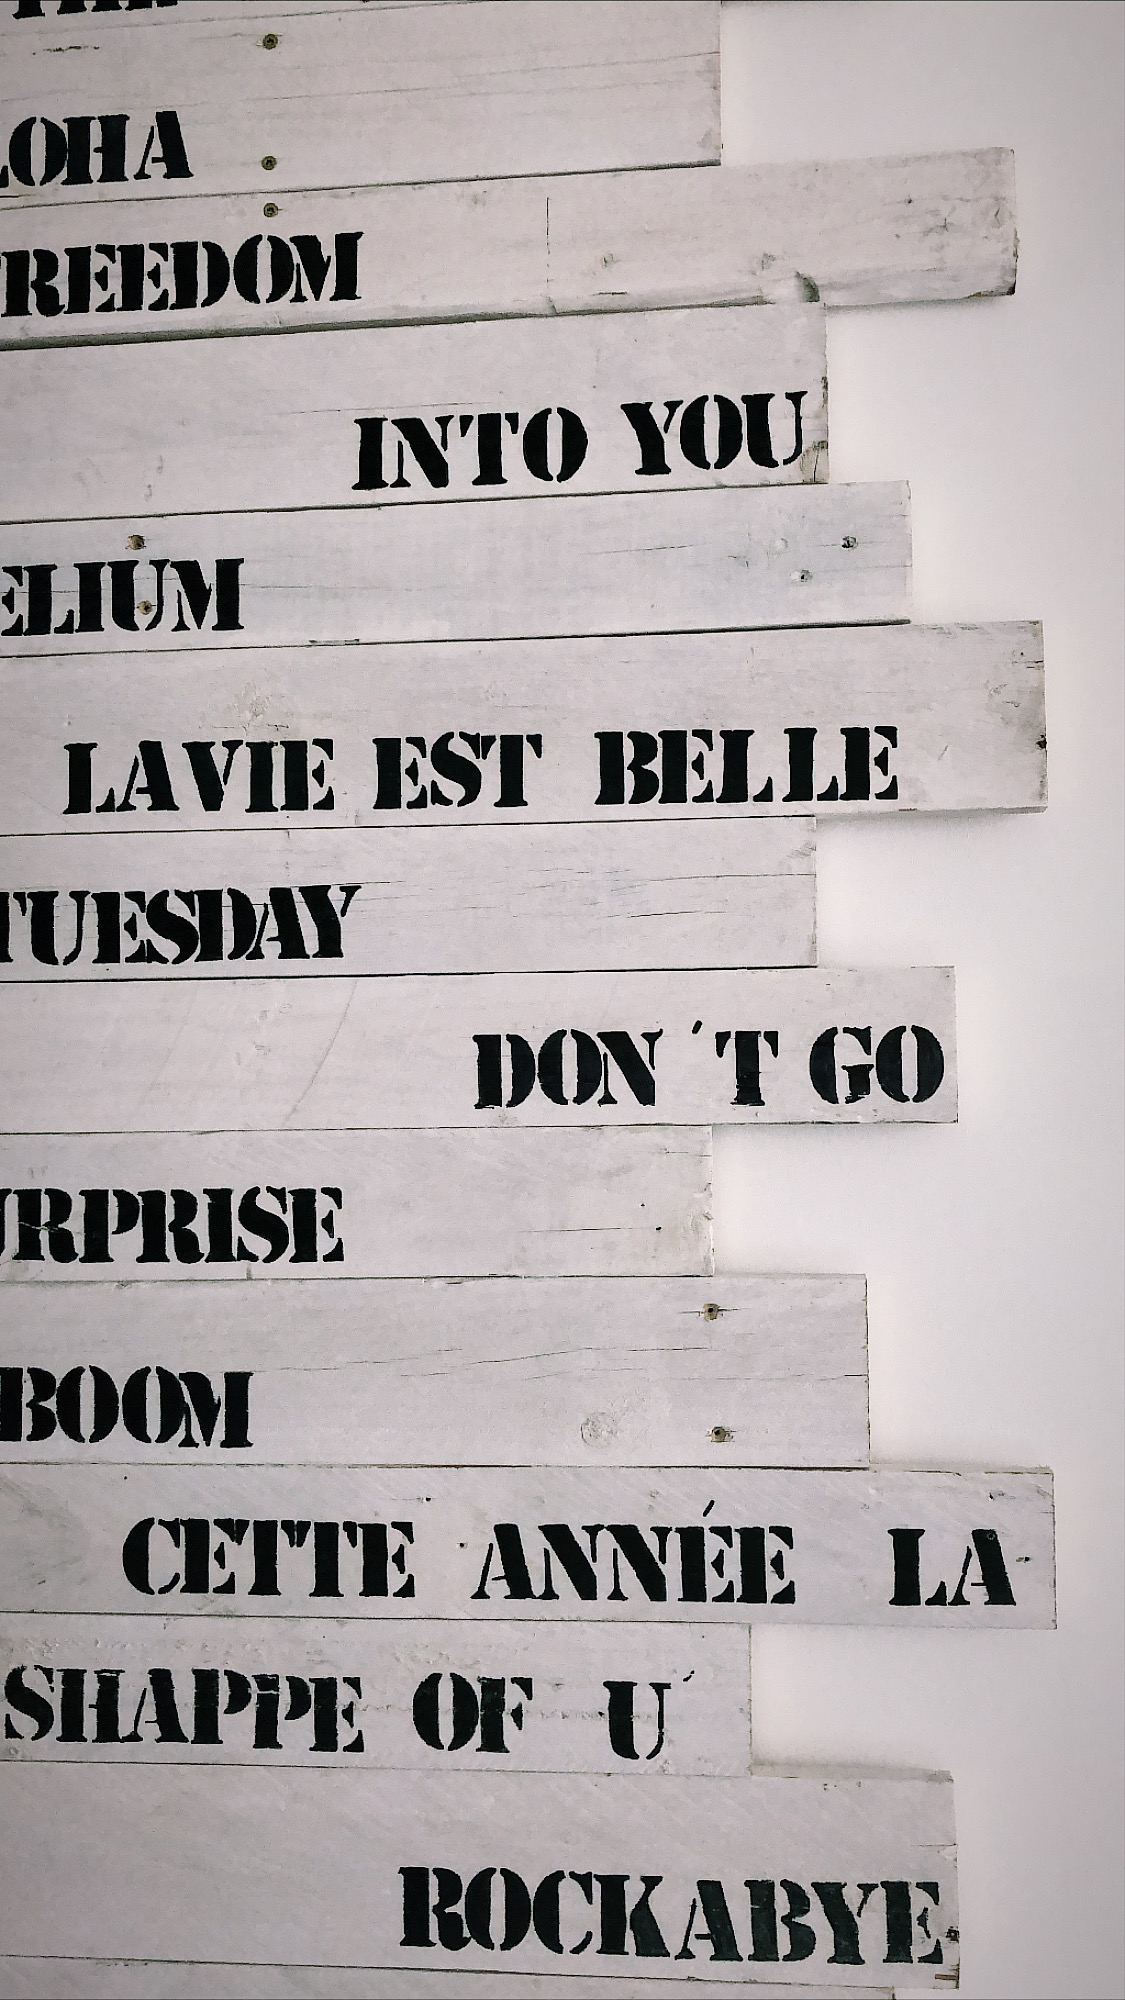 THE
LOHA
FREEDOM
INTO YOU
ELIUM
LA VIE EST BELLE
TUESDAY
DON´T GO
URPRISE
BOOM
CETTE ANNÉE LA
SHAPPE OF U´
ROCKABYE